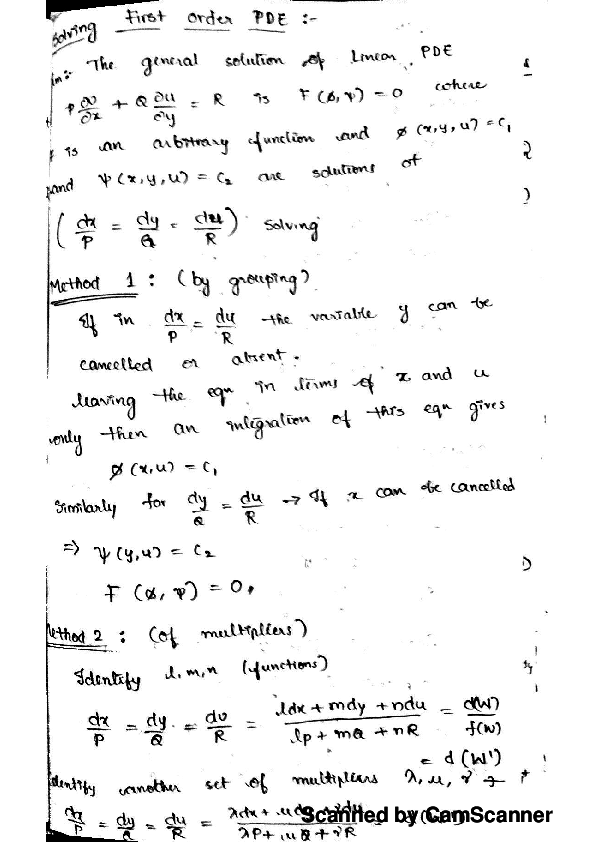 Solving First Order PDE :-
The general solution of linear PDE
P ∂u/∂x + Q ∂u/∂y = R is F(ϕ, ψ) = 0 where
is an arbitrary function and ϕ(x,y,u) = C₁
and ψ(x,y,u) = C₂ are solutions of
(dx/P = dy/Q = du/R) solving
Method 1 : (by grouping)
If in dx/P = du/R the variable y can be
cancelled or absent.
leaving the eqn in terms of x and u
only then an integration of this eqn gives
ϕ(x,u) = C₁
Similarly for dy/Q = du/R → If x can be cancelled
⇒ ψ(y,u) = C₂
F (ϕ, ψ) = 0,
Method 2 : (of multipliers)
Identify l,m,n (functions)
dx/P = dy/Q = du/R = ldx + mdy + ndu / lp + mQ + nR = d(W)/f(W)
= d(W')
Identify another set of multipliers λ, μ, γ
dx/P = dy/Q = du/R = / λP + μQ + γR
Scanned by CamScanner